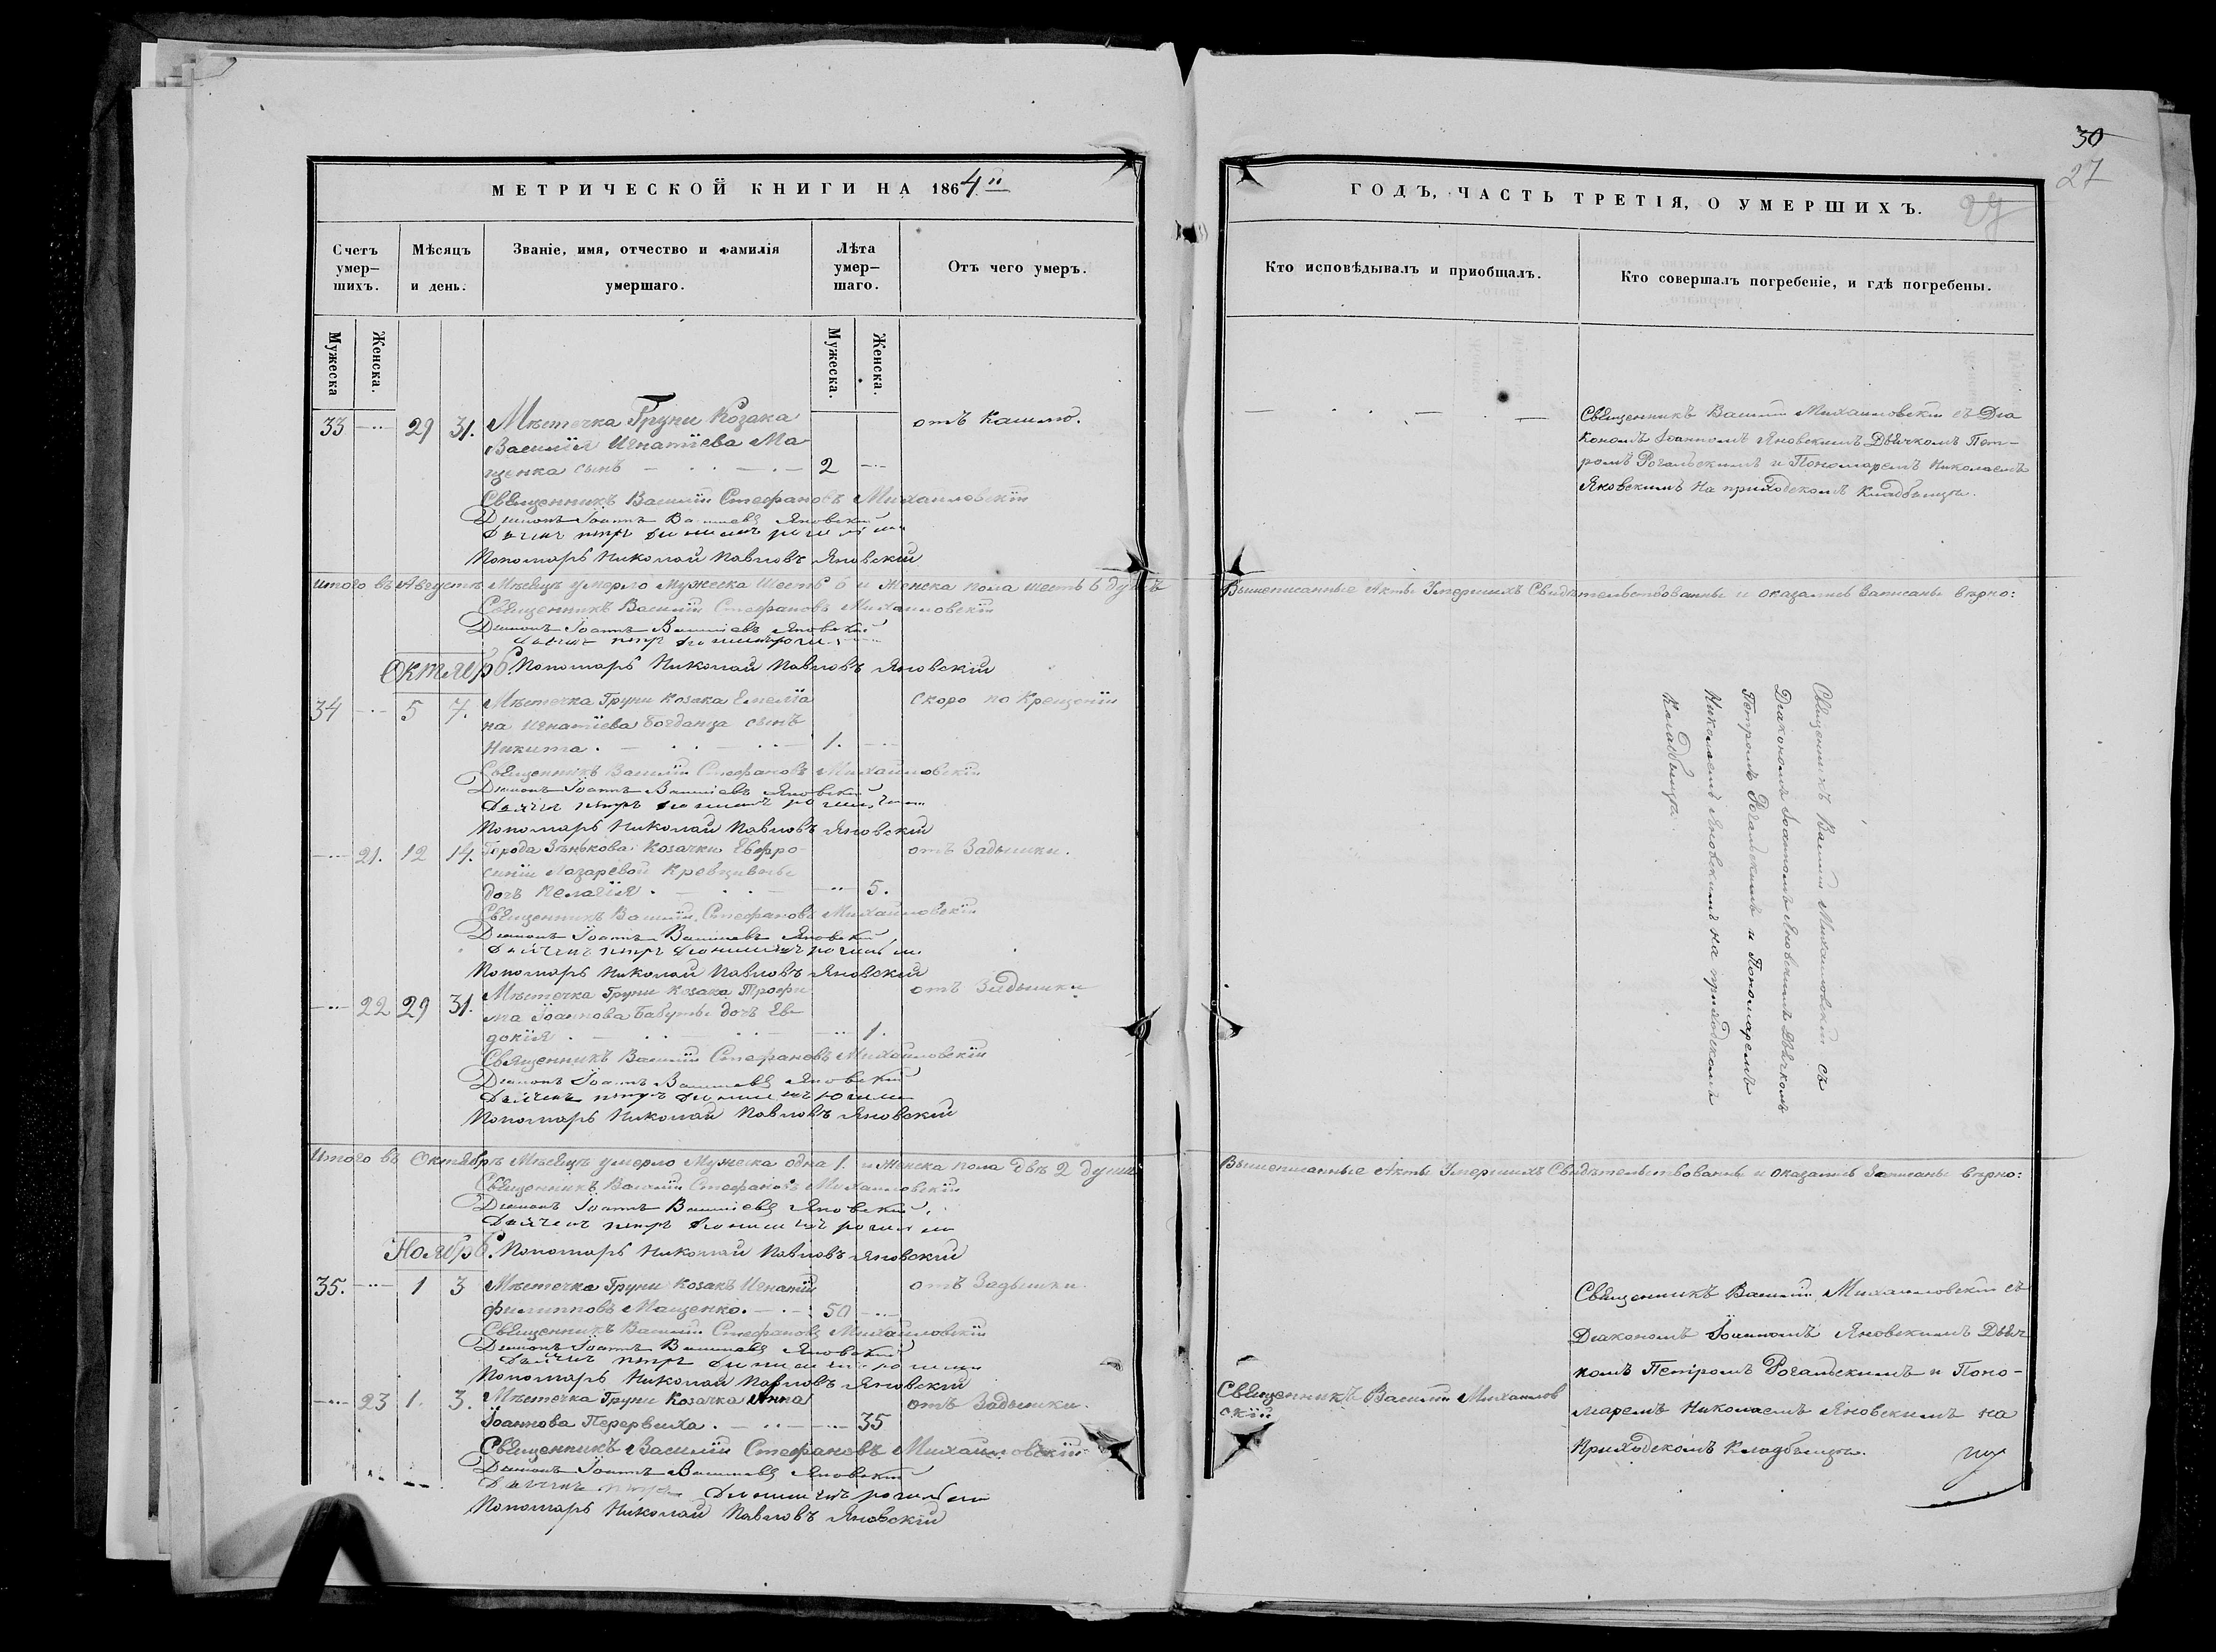 МЕТРИЧЕСКОЙ КНИГИ НА 1864
Счетъ умер-шихъ.
Мѣсяцъ и день.
Званіе, имя, отчество и фамилія умершаго.
Лѣта умер-шаго.
Отъ чего умеръ.
Мужеска
Женска.
Мужеска.
Женска.
33 29 31. Мѣстечка Груни Козака отъ Кашлю.
Василія Игнатіева Ма
щенка сынъ 2
Священникъ Василій Стефановъ Михайловскій
Діаконъ Іоаннъ Васильевъ Яновскій
Пономарь Николай Павловъ Яновскій
Итого въ Августѣ Мѣсяцѣ умерло мужеска шесть 6 и женска пола шесть 6 душъ
Священникъ Василій Стефановъ Михайловскій
Діаконъ Іоаннъ Васильевъ Яновскій
Октябрь. Пономарь Николай Павловъ Яновскій
34 5 7. Мѣстечка Груни Козака Емелія Скоро по Крещеніи
на Игнатіева Богданца сынъ
Никита. 1.
Священникъ Василій Стефановъ Михайловскій
Діаконъ Іоаннъ Васильевъ Яновскій
Пономарь Николай Павловъ Яновскій
21. 12 14. Города Зѣнькова Козачки Евфро- отъ Задышки.
синіи Лазаревой
дочь Пелагія. 5.
Священникъ Василій Стефановъ Михайловскій
Діаконъ Іоаннъ Васильевъ Яновскій
Пономарь Николай Павловъ Яновскій
22 29 31. Мѣстечка Груни Козака Трофи отъ Задышки
ма Іоаннова дочь Ев-
докія 1.
Священникъ Василій Стефановъ Михайловскій
Діаконъ Іоаннъ Васильевъ Яновскій
Пономарь Николай Павловъ Яновскій
Итого въ Октябрѣ Мѣсяцѣ умерло Мужеска одна 1. и Женска пола двѣ 2 души
Священникъ Василій Стефановъ Михайловскій
Діаконъ Іоаннъ Васильевъ Яновскій
Ноябрь. Пономарь Николай Павловъ Яновскій
35. 1 3 Мѣстечка Груни Козакъ Игнатій отъ Задышки.
Филипповъ Мащенко. 50
Священникъ Василій Стефановъ Михайловскій
Діаконъ Іоаннъ Васильевъ Яновскій
Пономарь Николай Павловъ Яновскій
23 1. 3. Мѣстечка Груни Козачка Анна отъ Задышки.
Іоаннова 35
Священникъ Василій Стефановъ Михайловскій
Діаконъ Іоаннъ Васильевъ Яновскій
Пономарь Николай Павловъ Яновскій
30
27
ГОДЪ, ЧАСТЬ ТРЕТІЯ, О УМЕРШИХЪ.
27
Кто исповѣдывалъ и пріобщалъ.
Кто совершалъ погребеніе, и гдѣ погребены.
Священникъ Василій Михайловскій съ Діа
кономъ Іоанномъ Яновскимъ Дьячкомъ Пет-
ромъ Рогальскимъ и Пономаремъ Николаемъ
Яновскимъ на приходскомъ Кладбищѣ.
Вышеписанные Акты Умершихъ Свидѣтельствованны и оказались Записаны вѣрно:
Священникъ Василій Михайловскій съ
Діакономъ Іоанномъ Яновскимъ Дьячкомъ
Петромъ Рогальскимъ и Пономаремъ
Николаемъ Яновскимъ на приходскомъ
Кладбищѣ.
Вышеписанные Акты Умершихъ Свидѣтельствованны и оказались Записаны вѣрно:
Священникъ Василій Михайловскій съ
Діакономъ Іоанномъ Яновскимъ Дьяч
комъ Петромъ Рогальскимъ и Поно-
маремъ Николаемъ Яновскимъ на
Приходскомъ Кладбищѣ.
Священникъ Василій Михайлов
скій